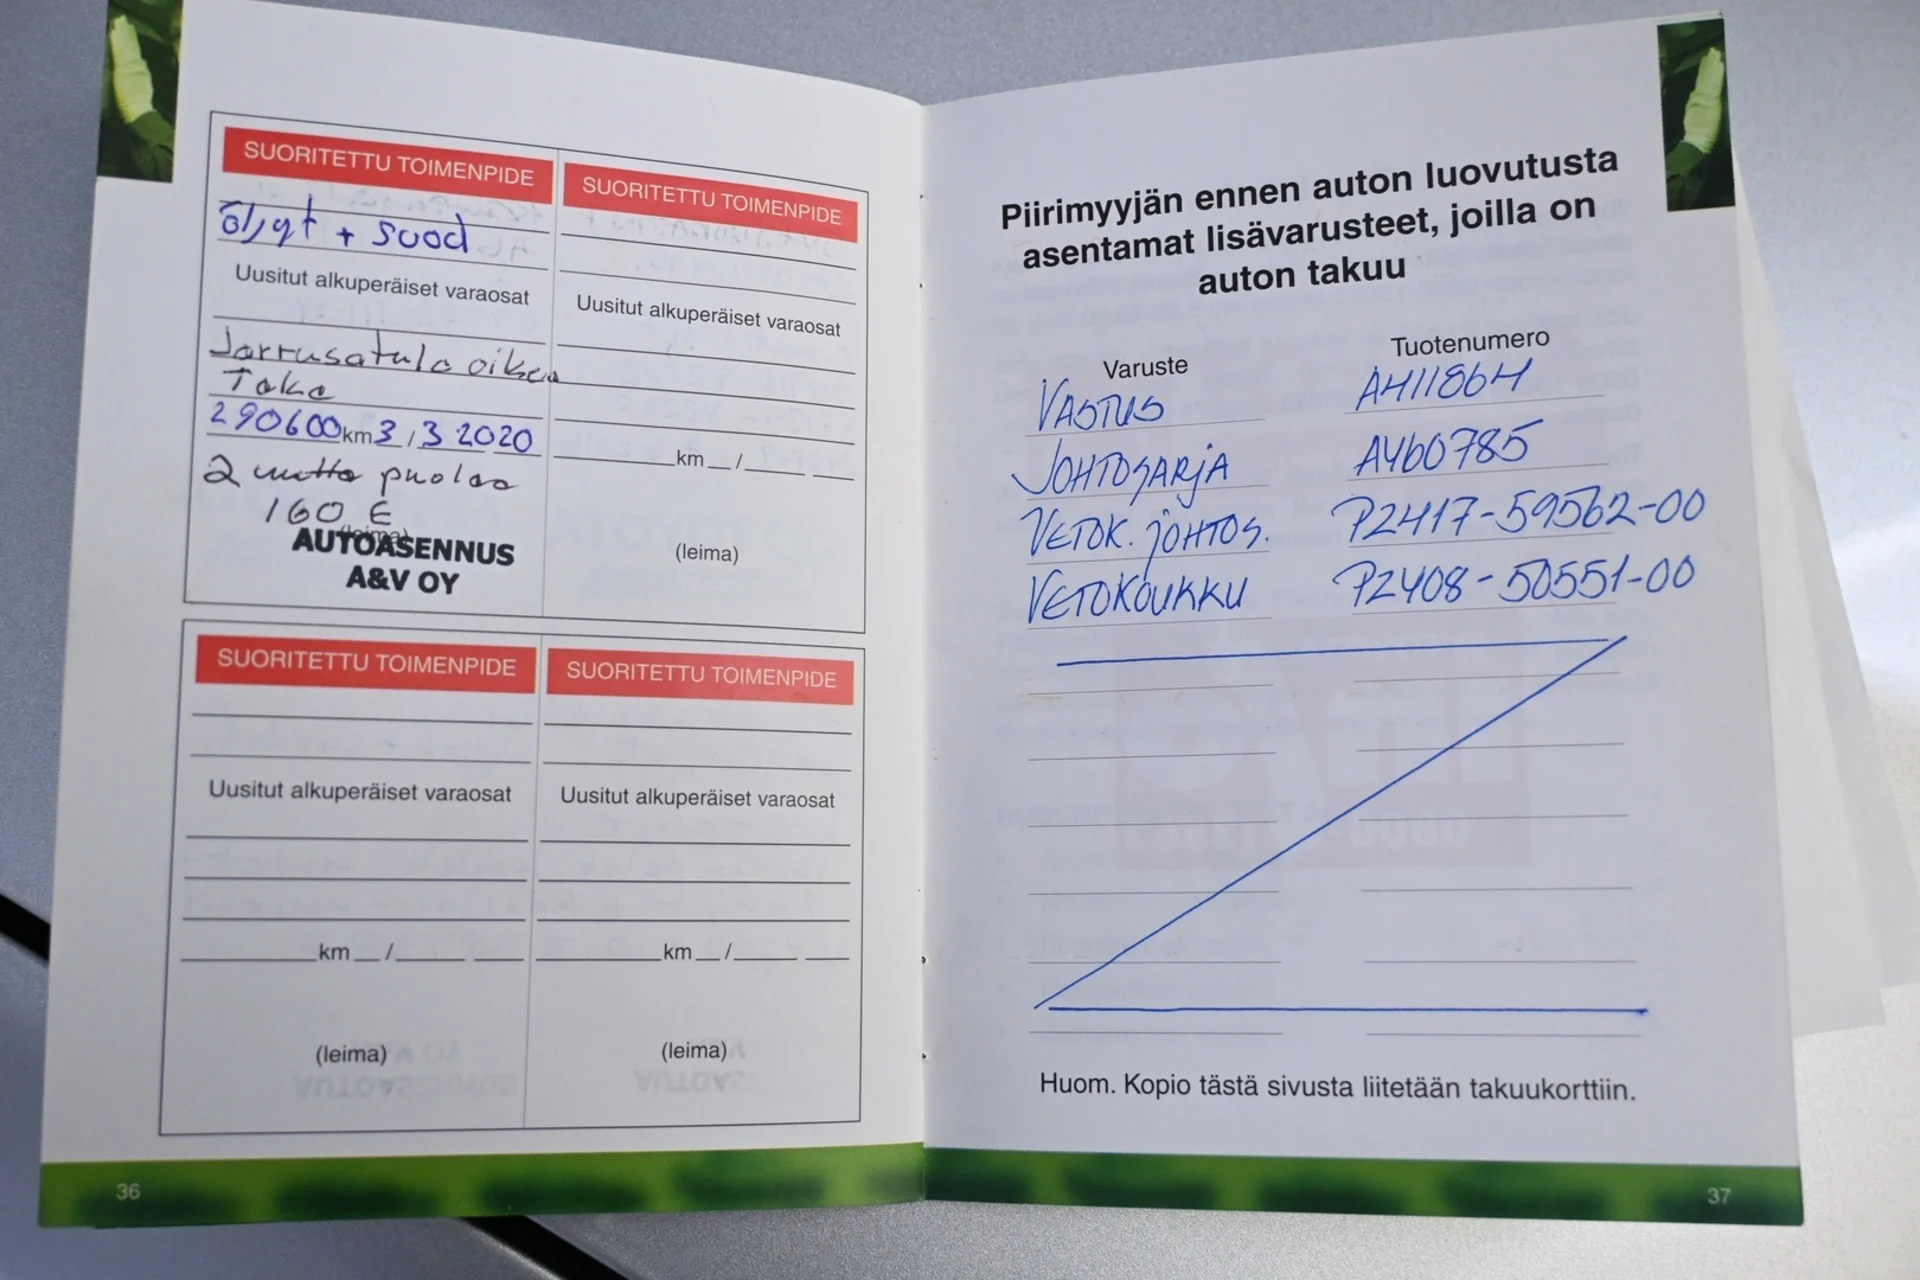 SUORITETTU TOIMENPIDE
öljyt + suod
Uusitut alkuperäiset varaosat
Jarrusatula oikea
Taka
290600 km 3 / 3 2020
2 mutta puolaa
160 €
(leima)
AUTOASENNUS
A&V OY
SUORITETTU TOIMENPIDE
Uusitut alkuperäiset varaosat
km /
(leima)
SUORITETTU TOIMENPIDE
Uusitut alkuperäiset varaosat
km /
(leima)
SUORITETTU TOIMENPIDE
Uusitut alkuperäiset varaosat
km /
(leima)
36
Piirimyyjän ennen auton luovutusta
asentamat lisävarusteet, joilla on
auton takuu
Varuste Tuotenumero
VASTUS AH11864
JOHTOSARJA AY60785
VETOK. JOHTOS. PZ417-59562-00
VETOKOUKKU PZ408-50551-00
Huom. Kopio tästä sivusta liitetään takuukorttiin.
37